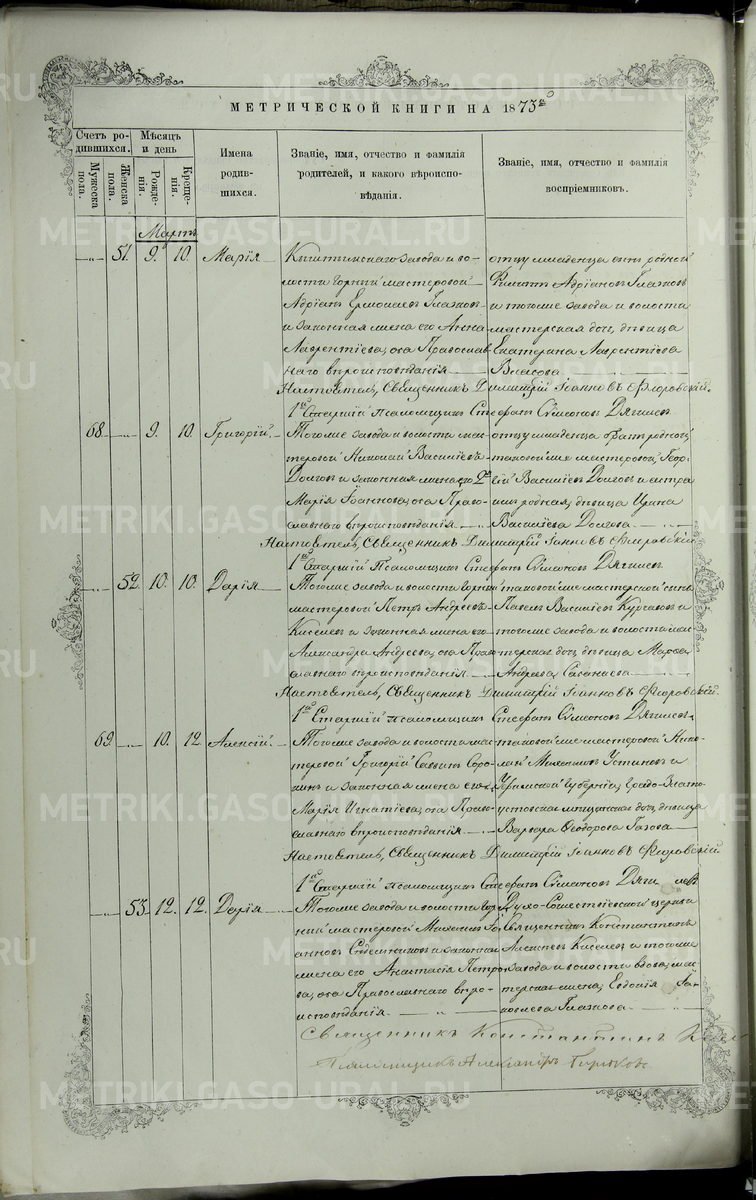 МЕТРИЧЕСКОЙ КНИГИ НА 1873го
Счетъ родившихся.
Мужеска пола.
Женска пола.
Мѣсяцъ и день
Рожденія.
Крещенія.
Имена родившихся.
Званіе, имя, отчество и фамилія родителей, и какого вѣроисповѣданія.
Званіе, имя, отчество и фамилія воспріемниковъ.
Мартъ
51. 9. 10. Марія
Кыштымскаго завода и во-
лости горный мастеровой
Адріанъ Ермолаевъ Глазковъ
и законная жена его Анна
Лаврентіева, оба Православ-
наго вѣроисповѣданія
отцу младенца братъ родной
Филиппъ Адріановъ Глазковъ
и тогоже завода и волости
мастерская дочь, дѣвица
Екатерина Лаврентіева
Власова
Настоятель, Священникъ Димитрій Іоанновъ Флоровскій.
1й Старшій псаломщикъ Стефанъ Симоновъ Дягилевъ
68 9. 10. Григорій.
Тогоже завода и волости мас-
теровой Николай Василіевъ
Долговъ и законная жена его
Марія Іоаннова, оба Право-
славнаго вѣроисповѣданія
отцу младенца братъ родной,
таковой же мастеровой, Геор-
гій Василіевъ Долговъ и сестра
имъ родная, дѣвица Ирина
Василіева Долгова
Настоятель, Священникъ Димитрій Іоанновъ Флоровскій
1й Старшій Псаломщикъ Стефанъ Симоновъ Дягилевъ
52. 10. 10. Дарія
Тогоже завода и волости горный
мастеровой Петръ Андреевъ
Киселевъ и законная жена его
Александра Андреева, оба Право-
славнаго вѣроисповѣданія
таковой же мастерской сынъ
Павелъ Василіевъ Кургановъ и
тогоже завода и волости мас-
терская дочь, дѣвица Марфа
Андреева
Настоятель, Священникъ Димитрій Іоанновъ Флоровскій.
1й Старшій псаломщикъ Стефанъ Симоновъ Дягилевъ
69 10. 12 Алексій.
Тогоже завода и волости мас-
теровой Григорій Саввинъ Соро-
кинъ и законная жена его
Марія Игнатіева, оба Право-
славнаго вѣроисповѣданія
таковой же мастеровой Нико-
лай Михаиловъ Устиновъ и
Уфимской Губерніи, Градо-Злато-
устовская мѣщанская дочь, дѣвица
Варвара Ѳеодорова
Настоятель, Священникъ Димитрій Іоанновъ Флоровскій.
1й Старшій псаломщикъ Стефанъ Симоновъ Дягилевъ
53 12. 12. Дарія
Тогоже завода и волости гор-
ный мастеровой Михаилъ Іо-
анновъ и законная
жена его Анастасія Петро-
ва, оба Православнаго вѣро-
исповѣданія
Духо-Сошествіевской церкви
Священникъ Константинъ
Алексіевъ Киселевъ и тогоже
завода и волости вдова, мас-
терская жена, Евдокія Іа-
ковлева Глазкова
Священникъ Константинъ
Псаломщикъ Александръ
METRIKI.GASO-URAL.RU